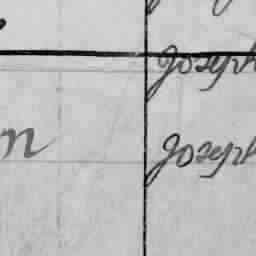 Joseph
n Joseph